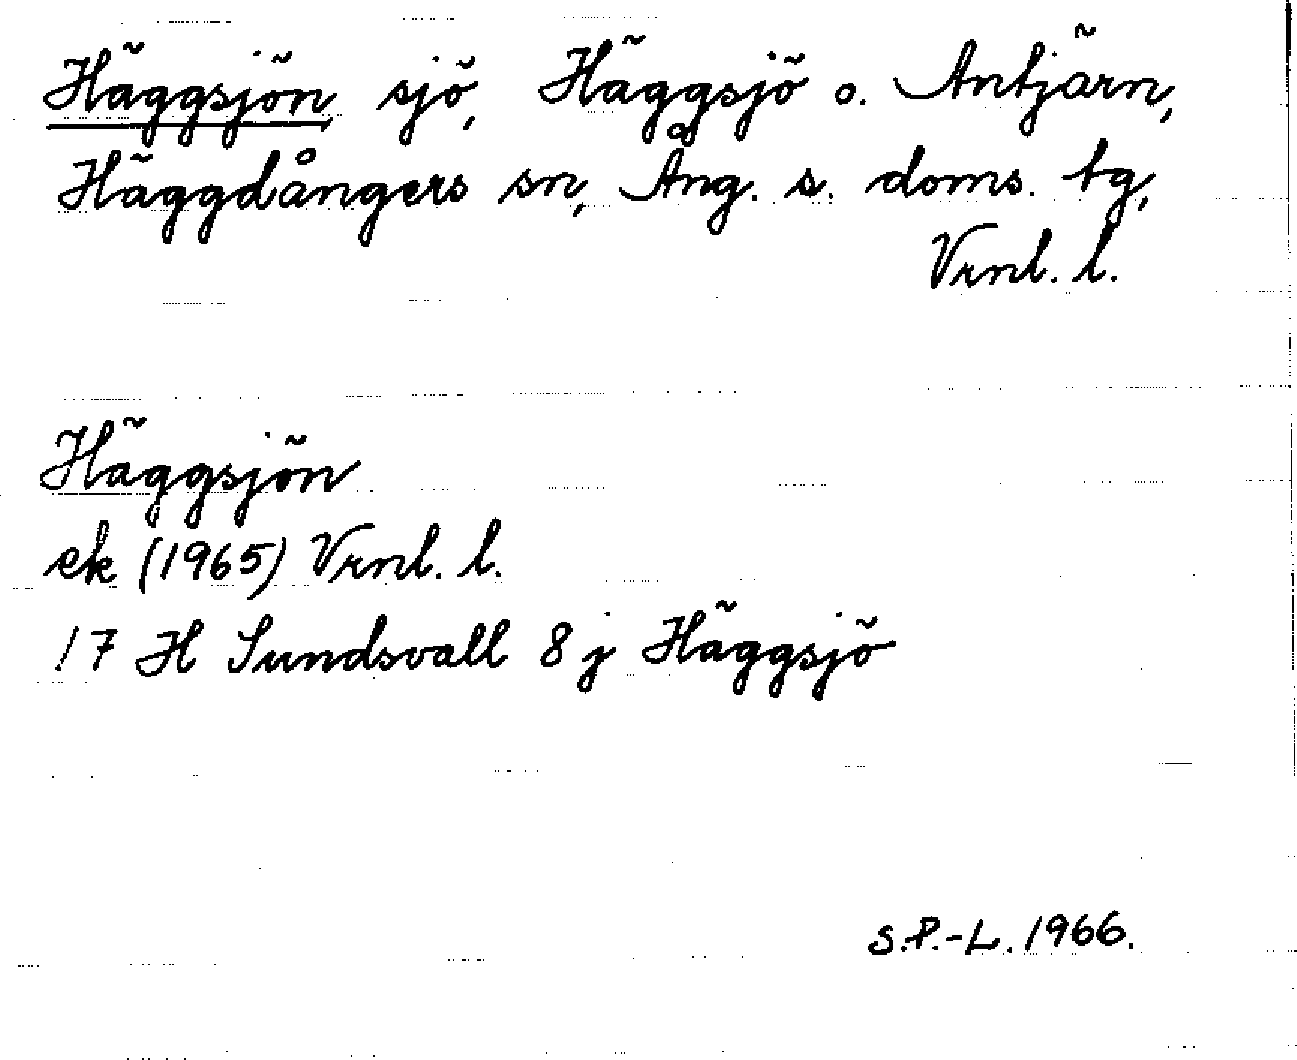 Häggsjön sjö, Häggsjö o. Antjärn,
Häggdångers sn, Ång. s. doms. tg,
Vrnl. l.
Häggsjön
ek (1965) Vrnl. l.
17 H Sundsvall 8 j Häggsjö
S.P.-L. 1966.